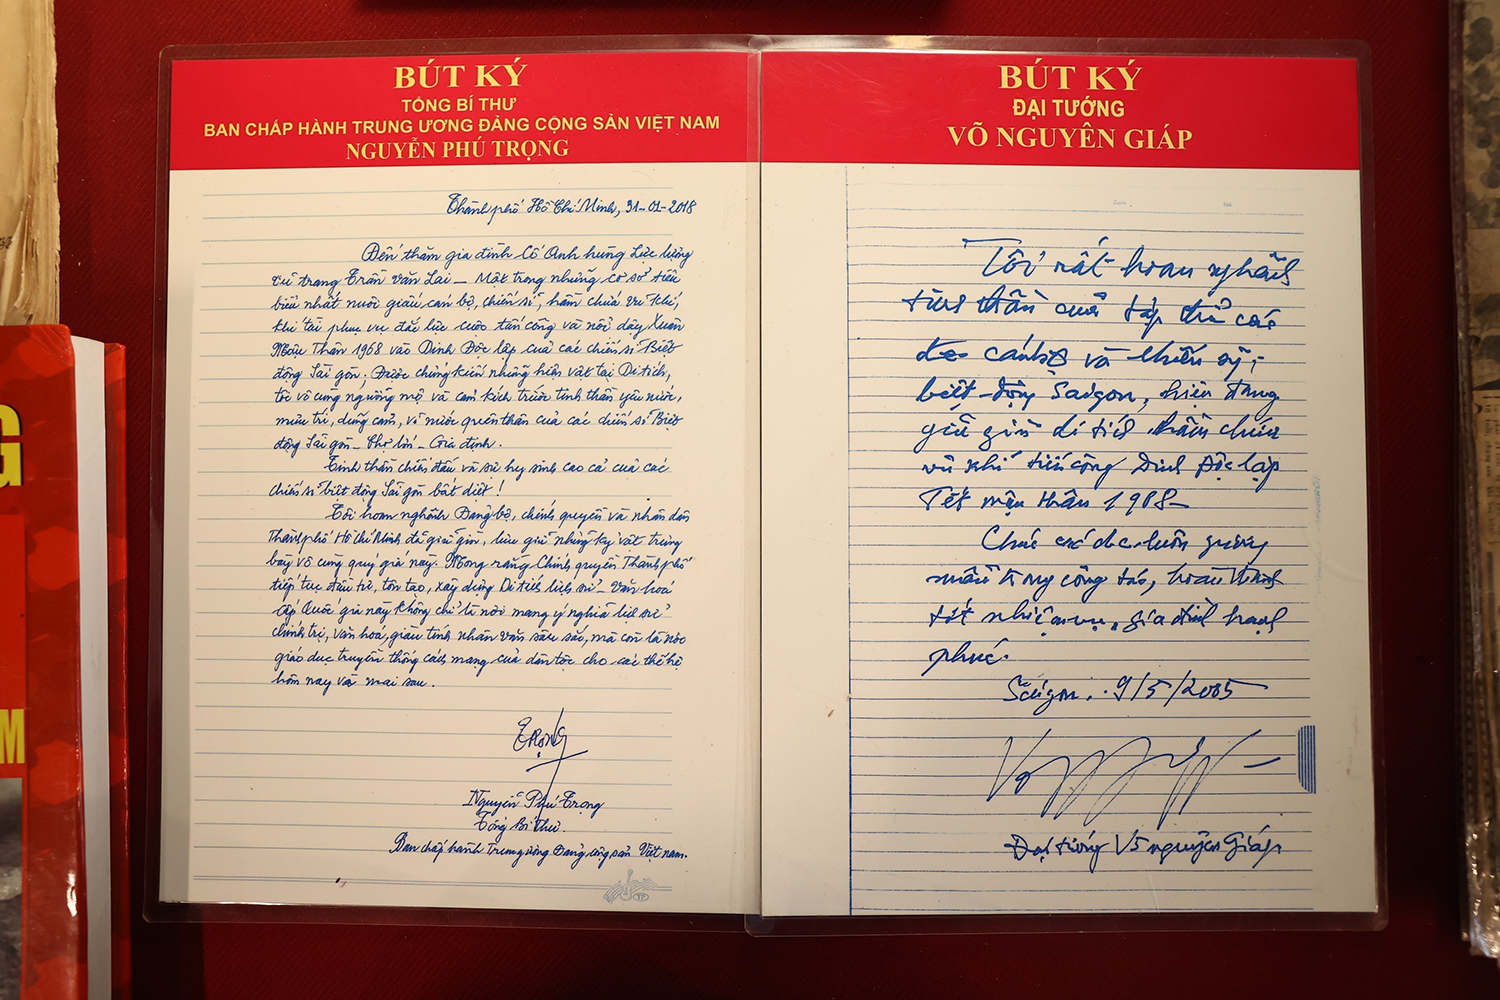 BÚT KÝ
TỔNG BÍ THƯ
BAN CHẤP HÀNH TRUNG ƯƠNG ĐẢNG CỘNG SẢN VIỆT NAM
NGUYỄN PHÚ TRỌNG
Thành phố Hồ Chí Minh, 31-01-2018
Đến thăm gia đình Cố Anh hùng Lực lượng
vũ trang Trần Văn Lai - Một trong những cơ sở tiêu
biểu nhất nuôi giấu cán bộ, chiến sĩ, hầm chứa vũ khí,
khí tài phục vụ đắc lực cuộc tấn công và nổi dậy Xuân
Mậu Thân 1968 vào Dinh Độc lập của các chiến sĩ Biệt
động Sài gòn. Được chứng kiến những hiện vật tại Di tích,
tôi vô cùng ngưỡng mộ và cảm kích trước tinh thần yêu nước,
mưu trí, dũng cảm, vì nước quên thân của các chiến sĩ Biệt
động Sài gòn - Chợ lớn - Gia định.
Tinh thần chiến đấu và sự hy sinh cao cả của các
chiến sĩ biệt động Sài gòn bất diệt!
Tôi hoan nghênh Đảng bộ, chính quyền và nhân dân
Thành phố Hồ Chí Minh đã giữ gìn, lưu giữ những kỷ vật trưng
bày vô cùng quý giá này. Mong rằng Chính quyền Thành phố
tiếp tục đầu tư, tôn tạo, xây dựng Di tích lịch sử - Văn hoá
cấp Quốc gia này không chỉ là nơi mang ý nghĩa lịch sử
chính trị, văn hoá, giàu tính nhân văn sâu sắc, mà còn là nơi
giáo dục truyền thống cách mạng của dân tộc cho các thế hệ
hôm nay và mai sau.
Trọng
Nguyễn Phú Trọng
Tổng Bí Thư
Ban chấp hành Trung ương Đảng cộng sản Việt Nam.
BÚT KÝ
ĐẠI TƯỚNG
VÕ NGUYÊN GIÁP
Tôi rất hoan nghênh
tinh thần của tập thể các
cán bộ và chiến sỹ
biệt-động Saigon, hiện đang
giữ gìn di tích hầm chứa
vũ khí tiến công Dinh Độc lập
Tết mậu thân 1968-
Chúc các đ/c luôn gương
mẫu trong công tác, hoàn thành
tốt nhiệm vụ, gia đình hạnh
phúc.
Sàigon. 9/5/2005
Đại tướng Võ nguyên Giáp
G
M